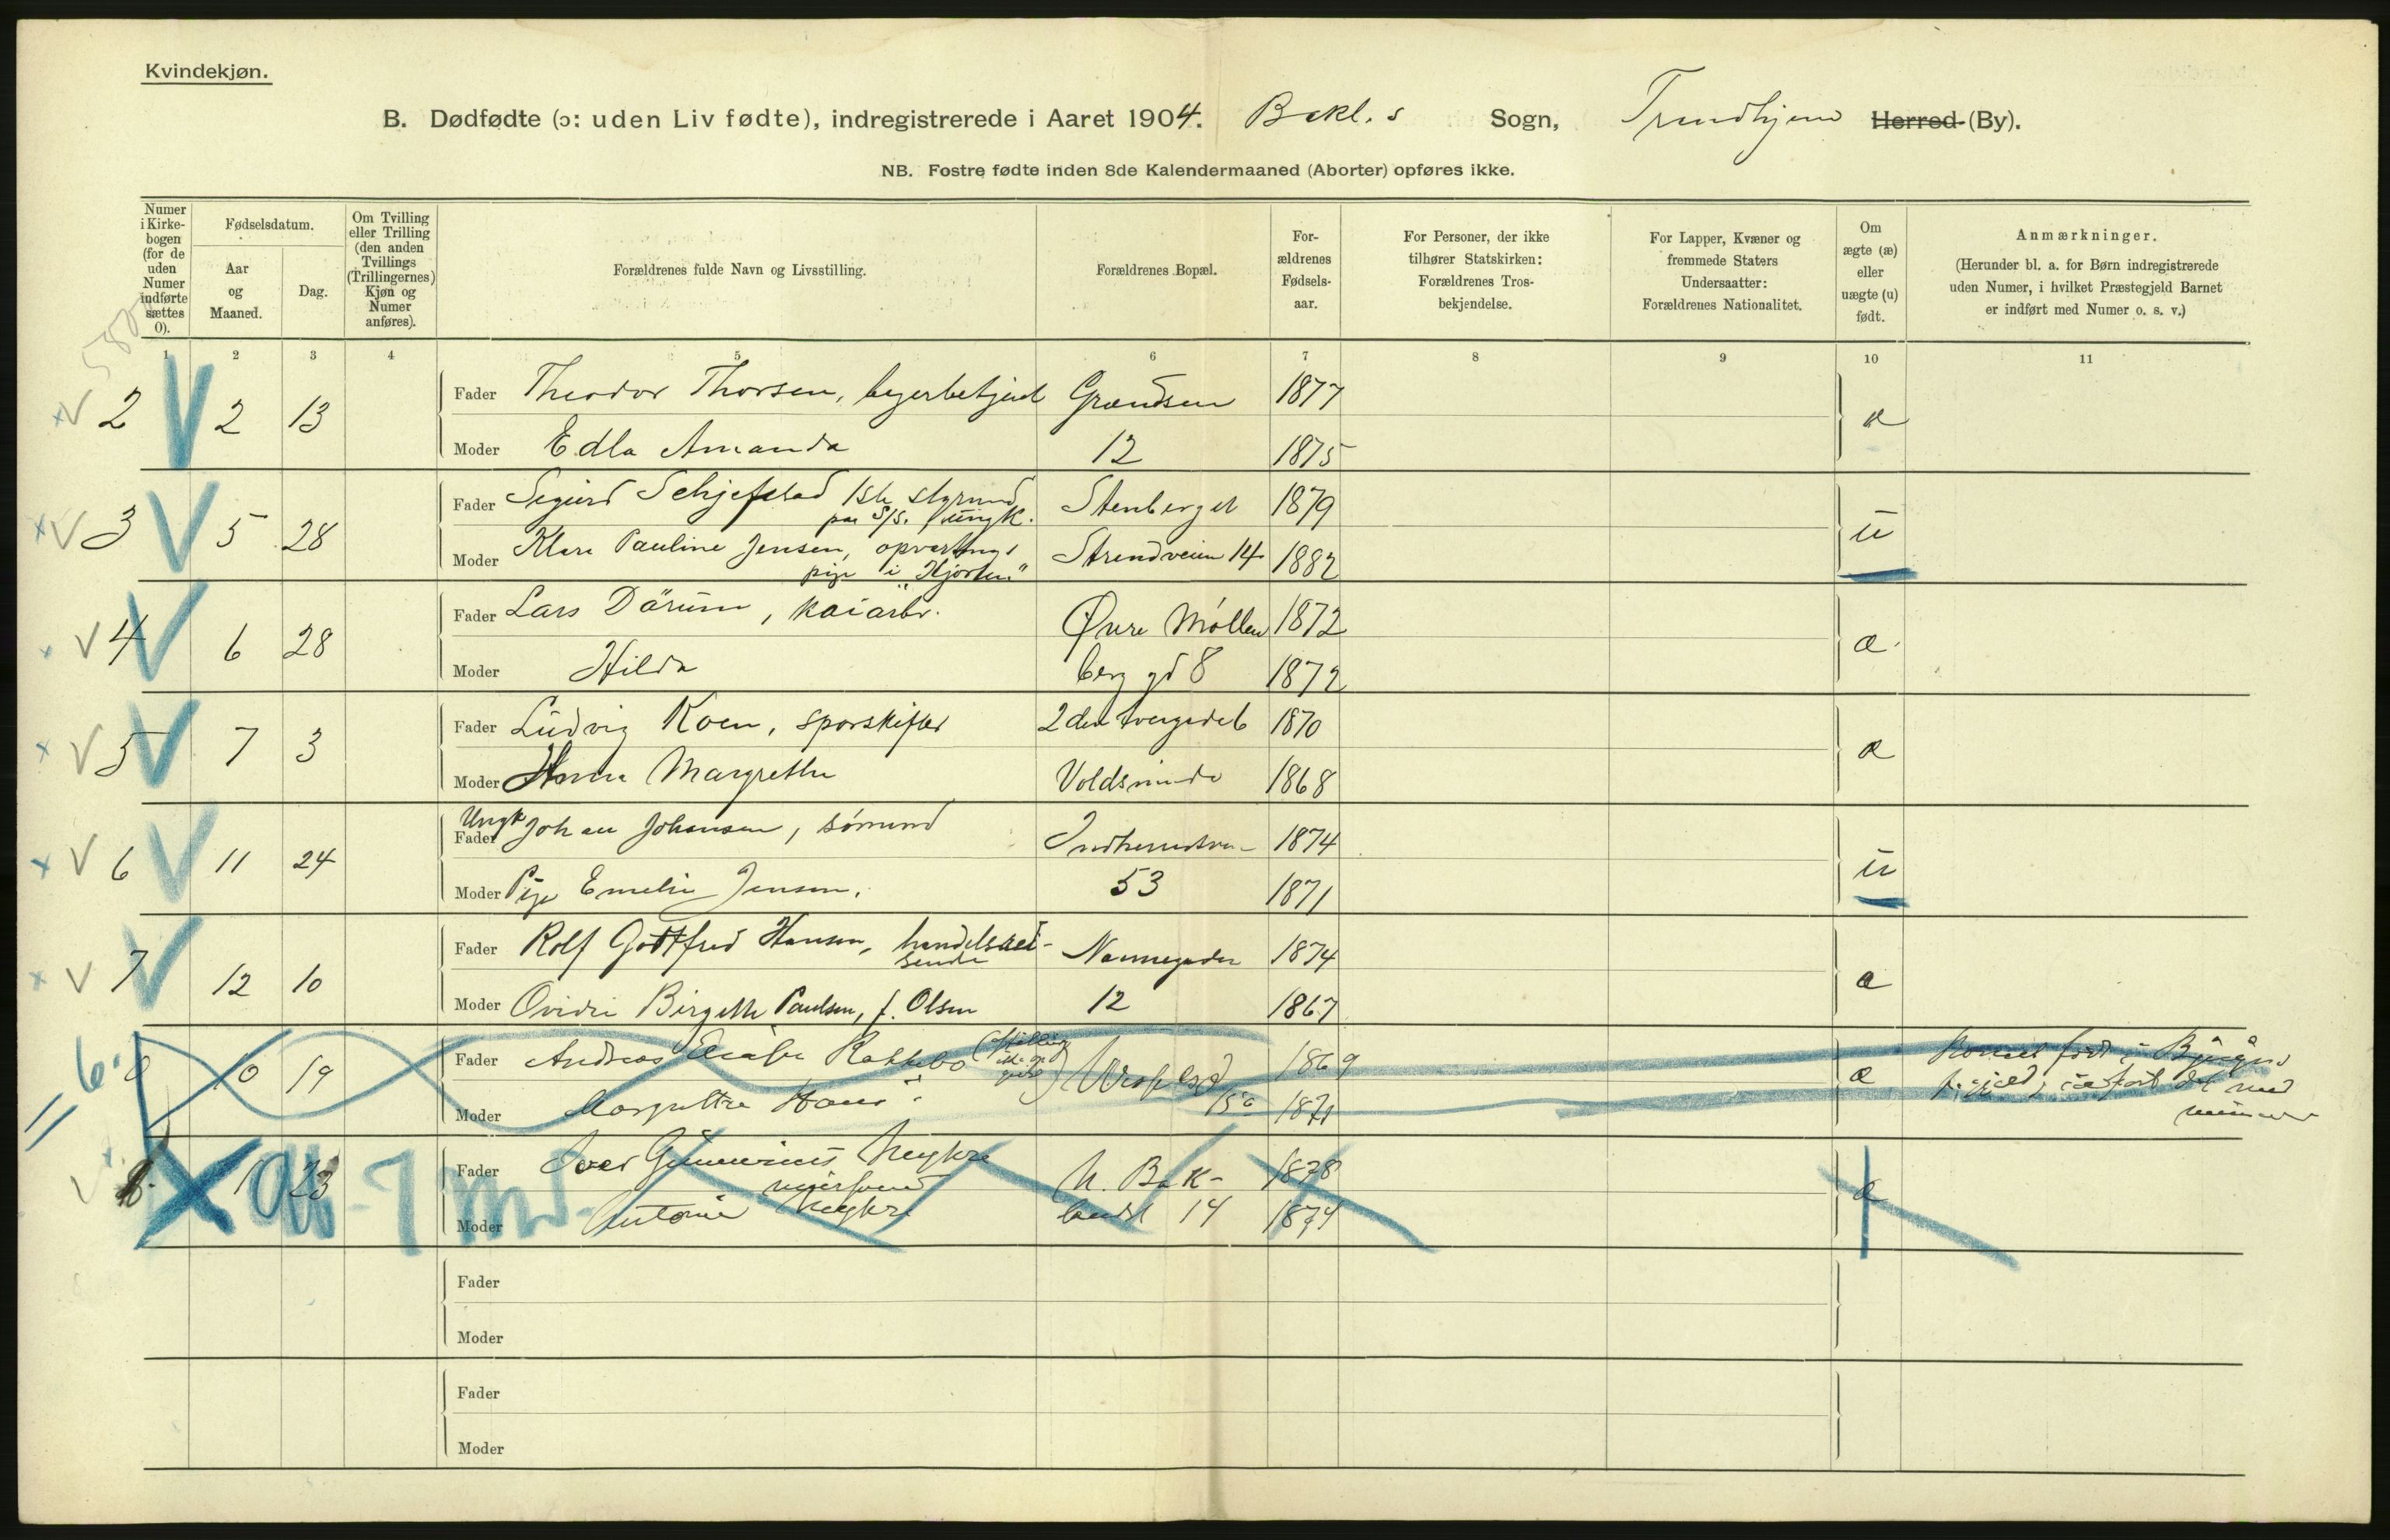 Kvindekjøn.
B. Dødfødte (ɔ: uden Liv fødte), indregistrerede i Aaret 1904. Bakl. s Sogn, Trondhjem Herred (By).
NB. Fostre fødte inden 8de Kalendermaaned (Aborter) opføres ikke.
Numer i Kirke-bogen (for de uden Numer indførte sættes 0).
Fødselsdatum.
Aar og Maaned.
Dag.
Om Tvilling eller Trilling (den anden Tvillings (Trillingernes) Kjøn og Numer anføres).
Forældrenes fulde Navn og Livsstilling.
Forældrenes Bopæl.
For-ældrenes Fødsels-aar.
For Personer, der ikke tilhører Statskirken: Forældrenes Tros-bekjendelse.
For Lapper, Kvæner og fremmede Staters Undersaatter: Forældrenes Nationalitet.
Om ægte (æ) eller uægte (u) født.
Anmærkninger.
(Herunder bl. a. for Børn indregistrerede uden Numer, i hvilket Præstegjeld Barnet er indført med Numer o. s. v.)
1 2 3 4 5 6 7 8 9 10 11
2 2 13 Fader Theodor Thorsen, byerbetjent Grændsen 1877 æ
Moder Edla Amanda 12 1875
3 5 28 Fader Sigurd 1ste styrmd Stenberget 1879 u
paa S/S. ungk.
Moder Klara Pauline Jensen, opvartnings Strandveien 14 1882
pige i "Hjorten"
4 6 28 Fader Lars Dårum, kaiarbr. Øvre Møllen 1872 æ
Moder Hilda berg gd 8 1872
5 7 3 Fader Ludvig Koen, sporskifter 2den tvergade 6 1870 æ
Moder Anna Margrethe Voldsminde 1868
6 11 24 Ungk Fader Johan Johansen, sømand 1874 u
Moder Pige Emelie Jensen, 53 1871
7 12 10 Fader Rolf Gottfred Hansen, handelsrei- Nonnegaden 1874 æ
sende
Moder Ovidie Birgitte Paulsen, f. Olsen 12 1867
= 6.
0 10 19 Fader Andreas Rakkebo (Stilling 1869 æ
ikke op
Moder Margrethe 15a 1871
8 1 23 Fader Iver 1878 æ
Moder Antonie landet 14 1874
Fader
Moder
Fader
Moder